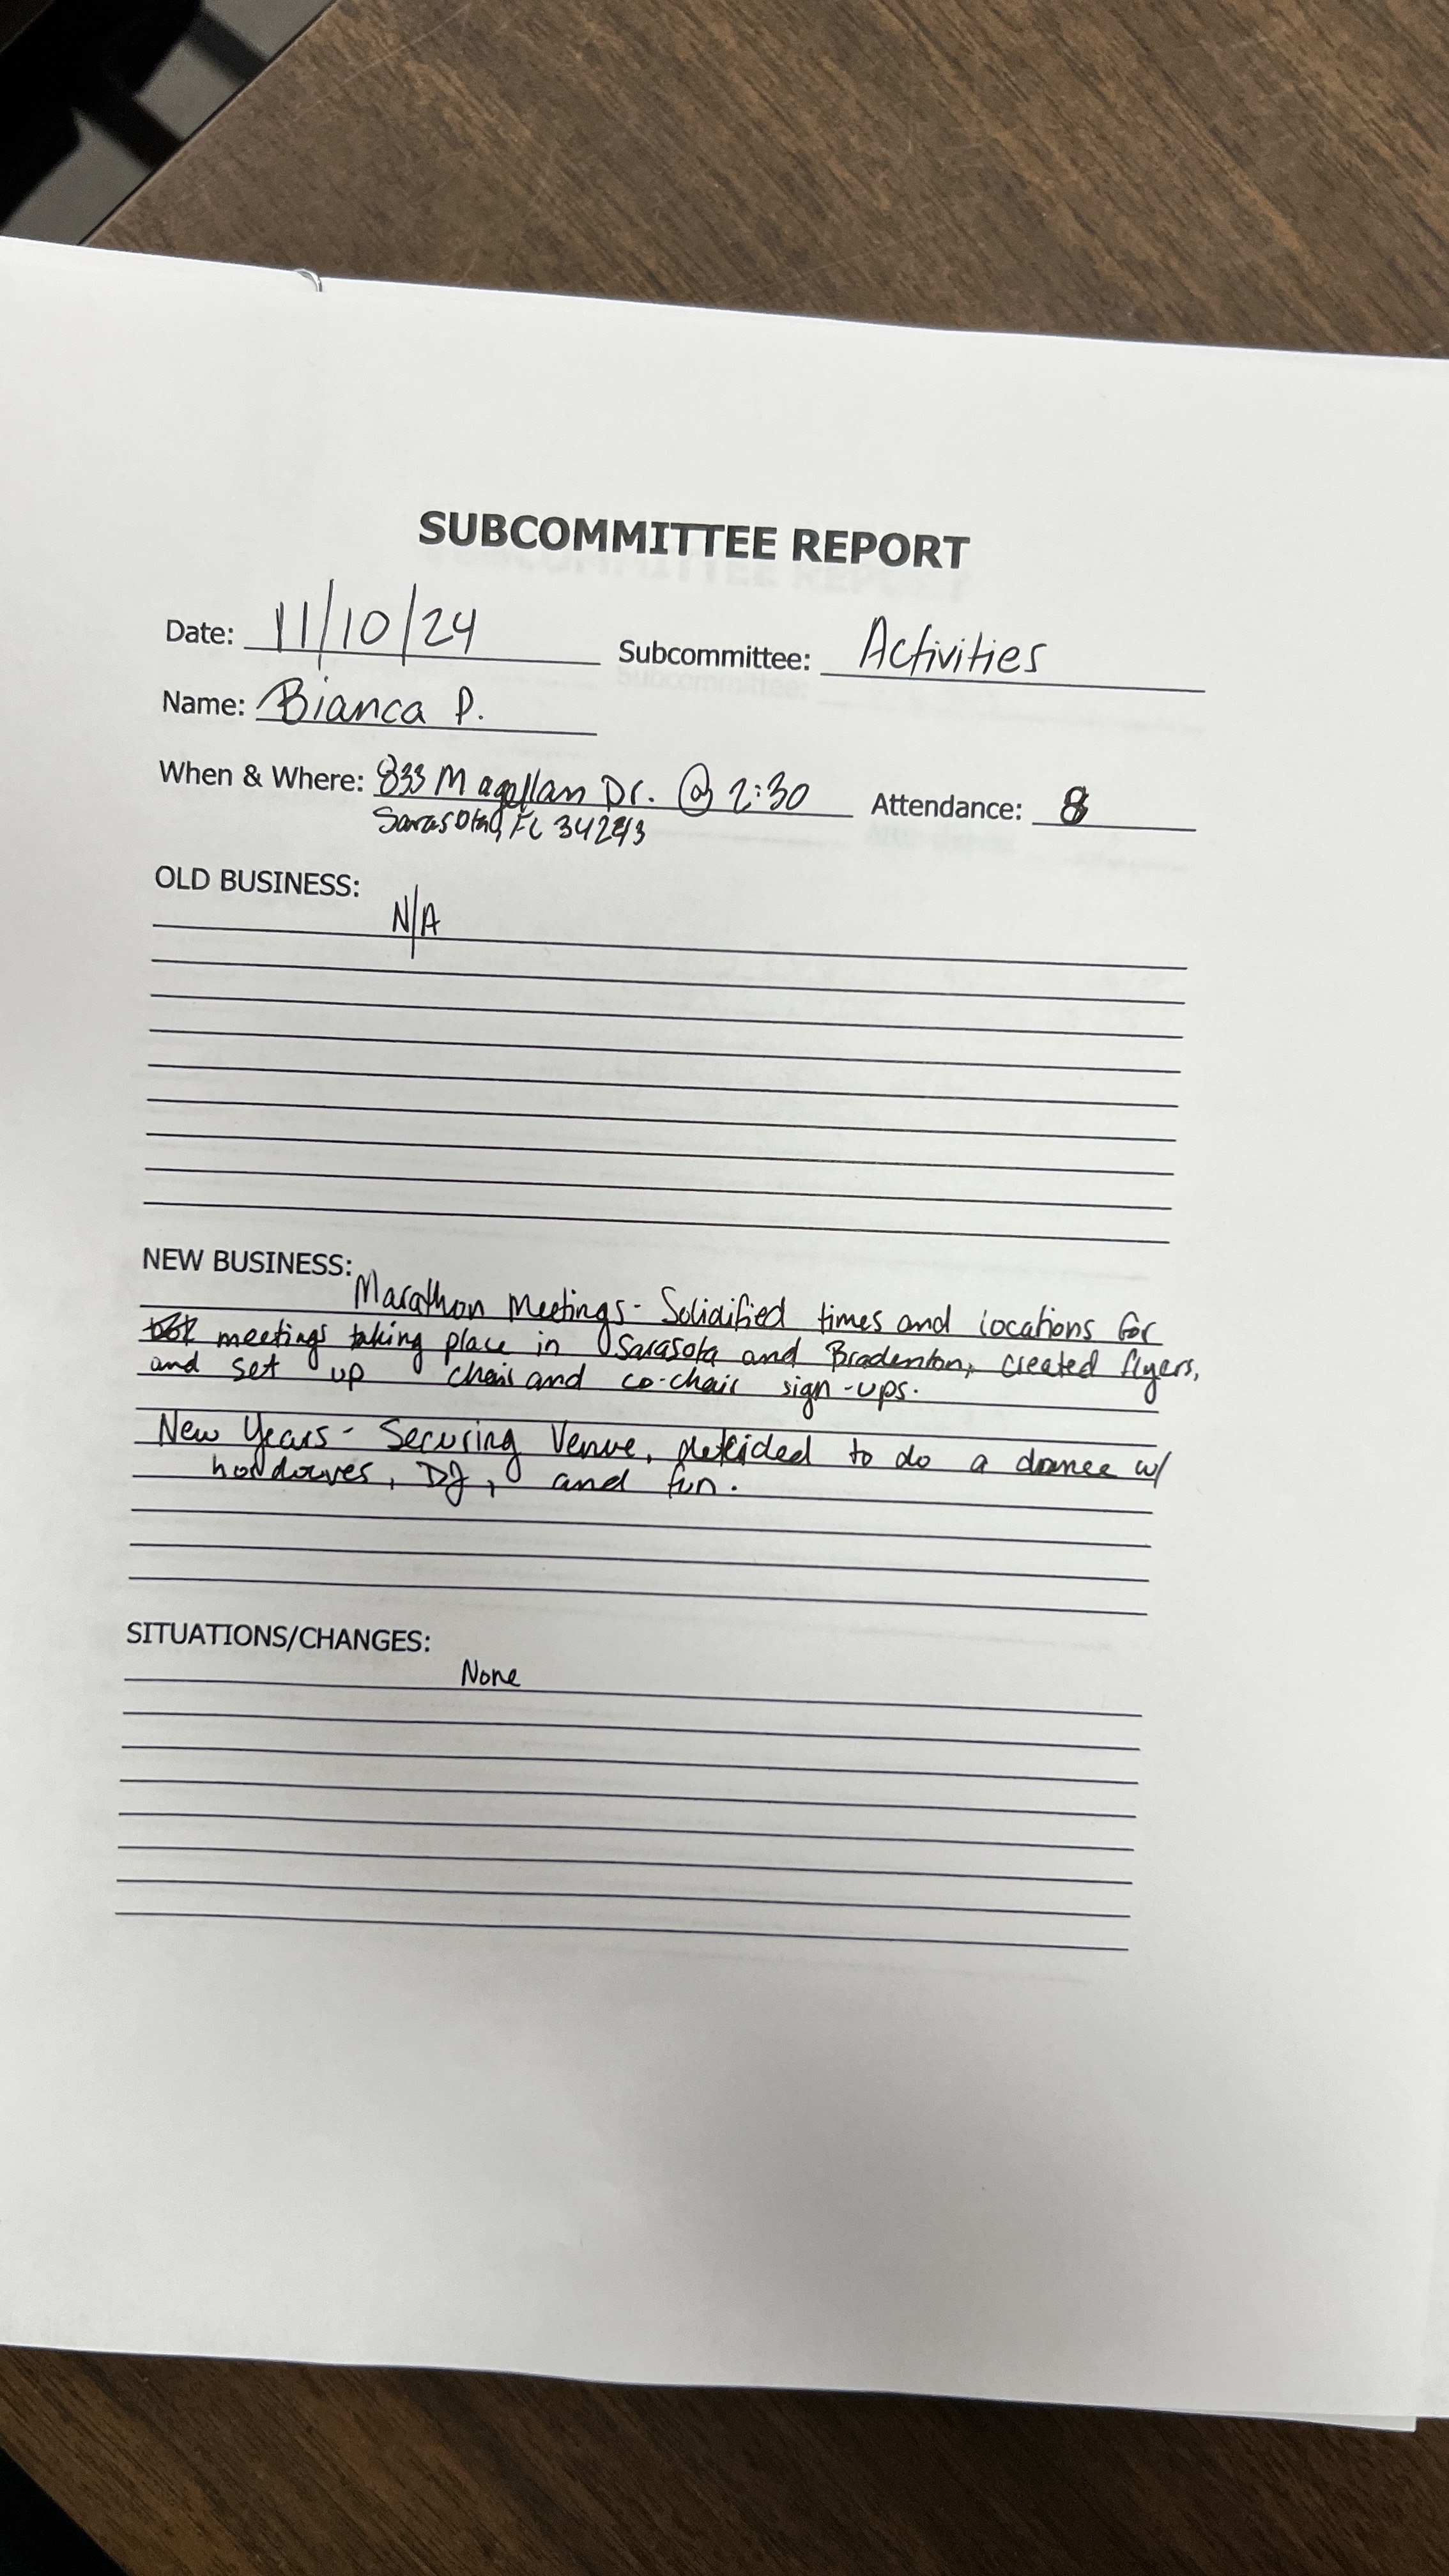 SUBCOMMITTEE REPORT
Date: 11/10/24 Subcommittee: Activities
Name: Bianca P.
When & Where: 833 Magellan Dr. @ 2:30 Attendance: 8
Sarasota, FL 34243
OLD BUSINESS:
N/A
NEW BUSINESS:
Marathon Meetings - Solidified times and locations for
meetings taking place in Sarasota and Bradenton, created flyers,
and set up chair and co-chair sign-ups.
New Years - Securing Venue, decided to do a dance w/
hordourves, DJ, and fun.
SITUATIONS/CHANGES:
None